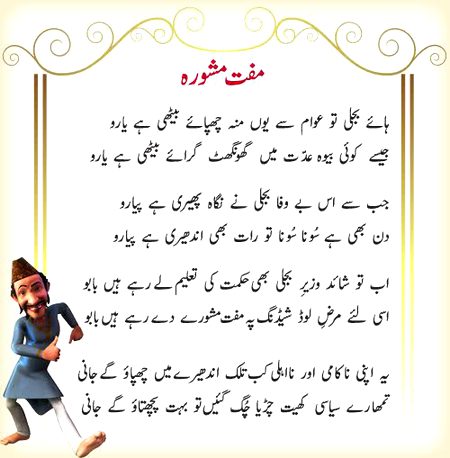 مفت مشورہ
ہائے بجلی تو عوام سے یوں منہ چھپائے بیٹھی ہے یارو
جیسے کوئی بیوہ عدّت میں گھونگھٹ گرائے بیٹھی ہے یارو
جب سے اس بے وفا بجلی نے نگاہ پھیری ہے پیارو
دن بھی ہے سُونا سُونا تو رات بھی اندھیری ہے پیارو
اب تو شائد وزیرِ بجلی بھی حکمت کی تعلیم لے رہے ہیں بابو
اسی لئے مرضِ لوڈ شیڈنگ پہ مفت مشورے دے رہے ہیں بابو
یہ اپنی ناکامی اور نااہلی کب تلک اندھیرے میں چھپاؤ گے جانی
تمھارے سیاسی کھیت چڑیا چُگ گئیں تو بہت پچھتاؤ گے جانی